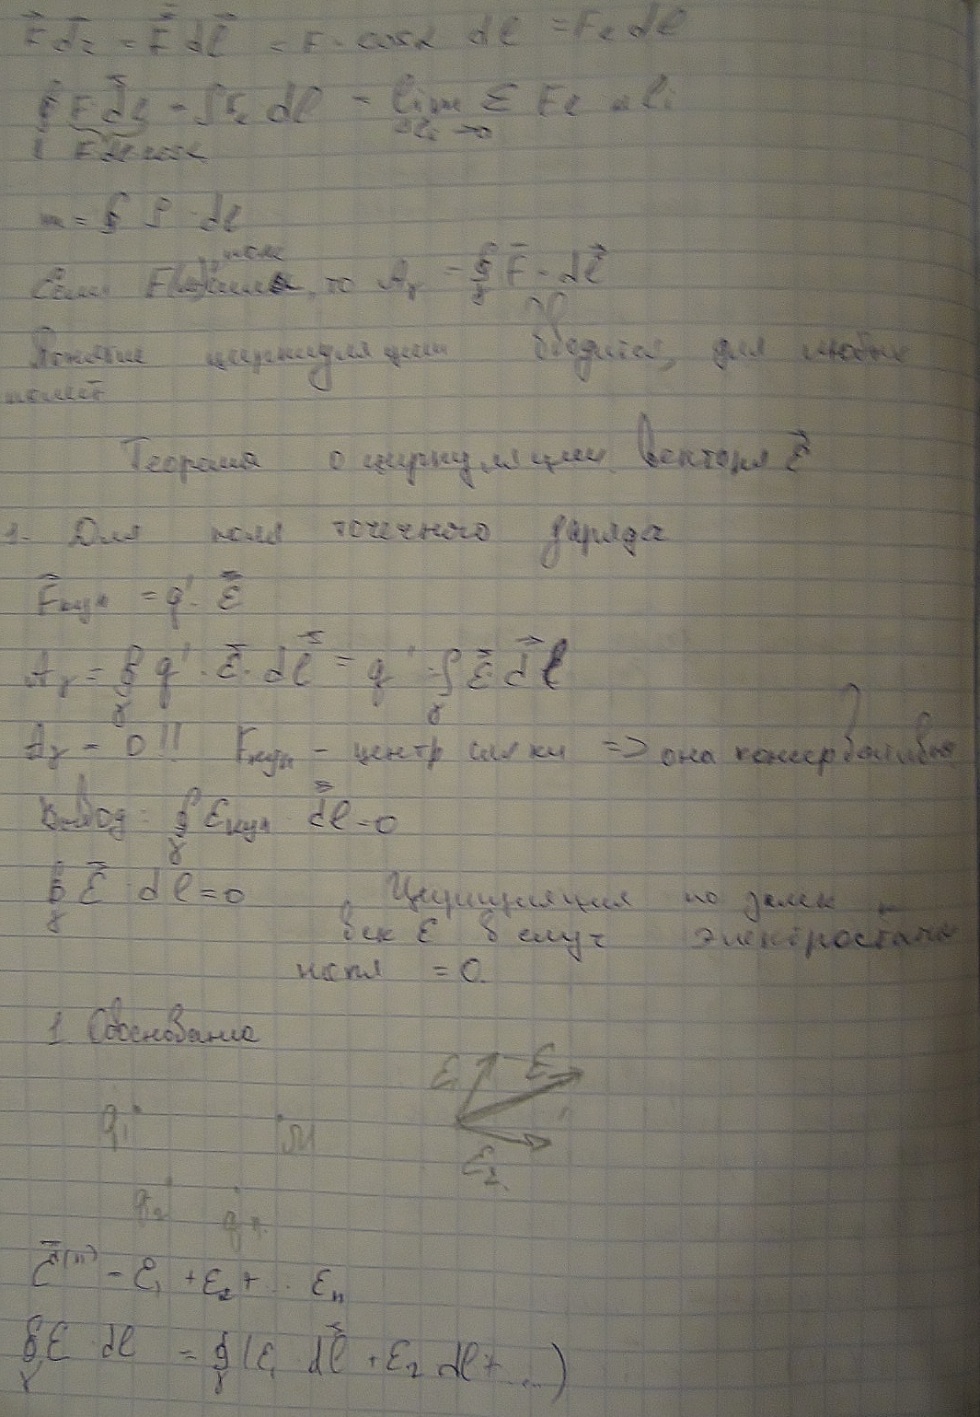 F⃗ dr⃗ = F⃗ dl⃗ = F · cosα dl = Fe dl
∮ F · dl⃗ = ∫Fe dl = lim Σ Fe Δli
Δli → 0
F dl cosα
m = ∮ ρ · dl
Если F поле сила, то Aγ = ∮ F⃗ · dl⃗
γ
Понятие циркуляции вводится, для любых
полей
Теорема о циркуляции вектора E⃗
1. Для поля точечного заряда
F⃗кул = q' · E⃗
Aγ = ∮ q' · E⃗ · dl⃗ = q' · ∮ E⃗ dl⃗
γ γ
Aγ = 0!! Fкул – центр силы => она консервативна
Вывод: ∮ Eкул dl⃗ = 0
γ
∮ E⃗ · dl = 0 Циркуляция по замк
γ
век E в случ электростат
поля = 0.
1. Обоснование
E1 E
q1 M
E2
q2 qn
E⃗(n) = E1 + E2 + .. En
∮ E · dl = ∮ (E1 dl⃗ + E2 dl + ...)
γ γ